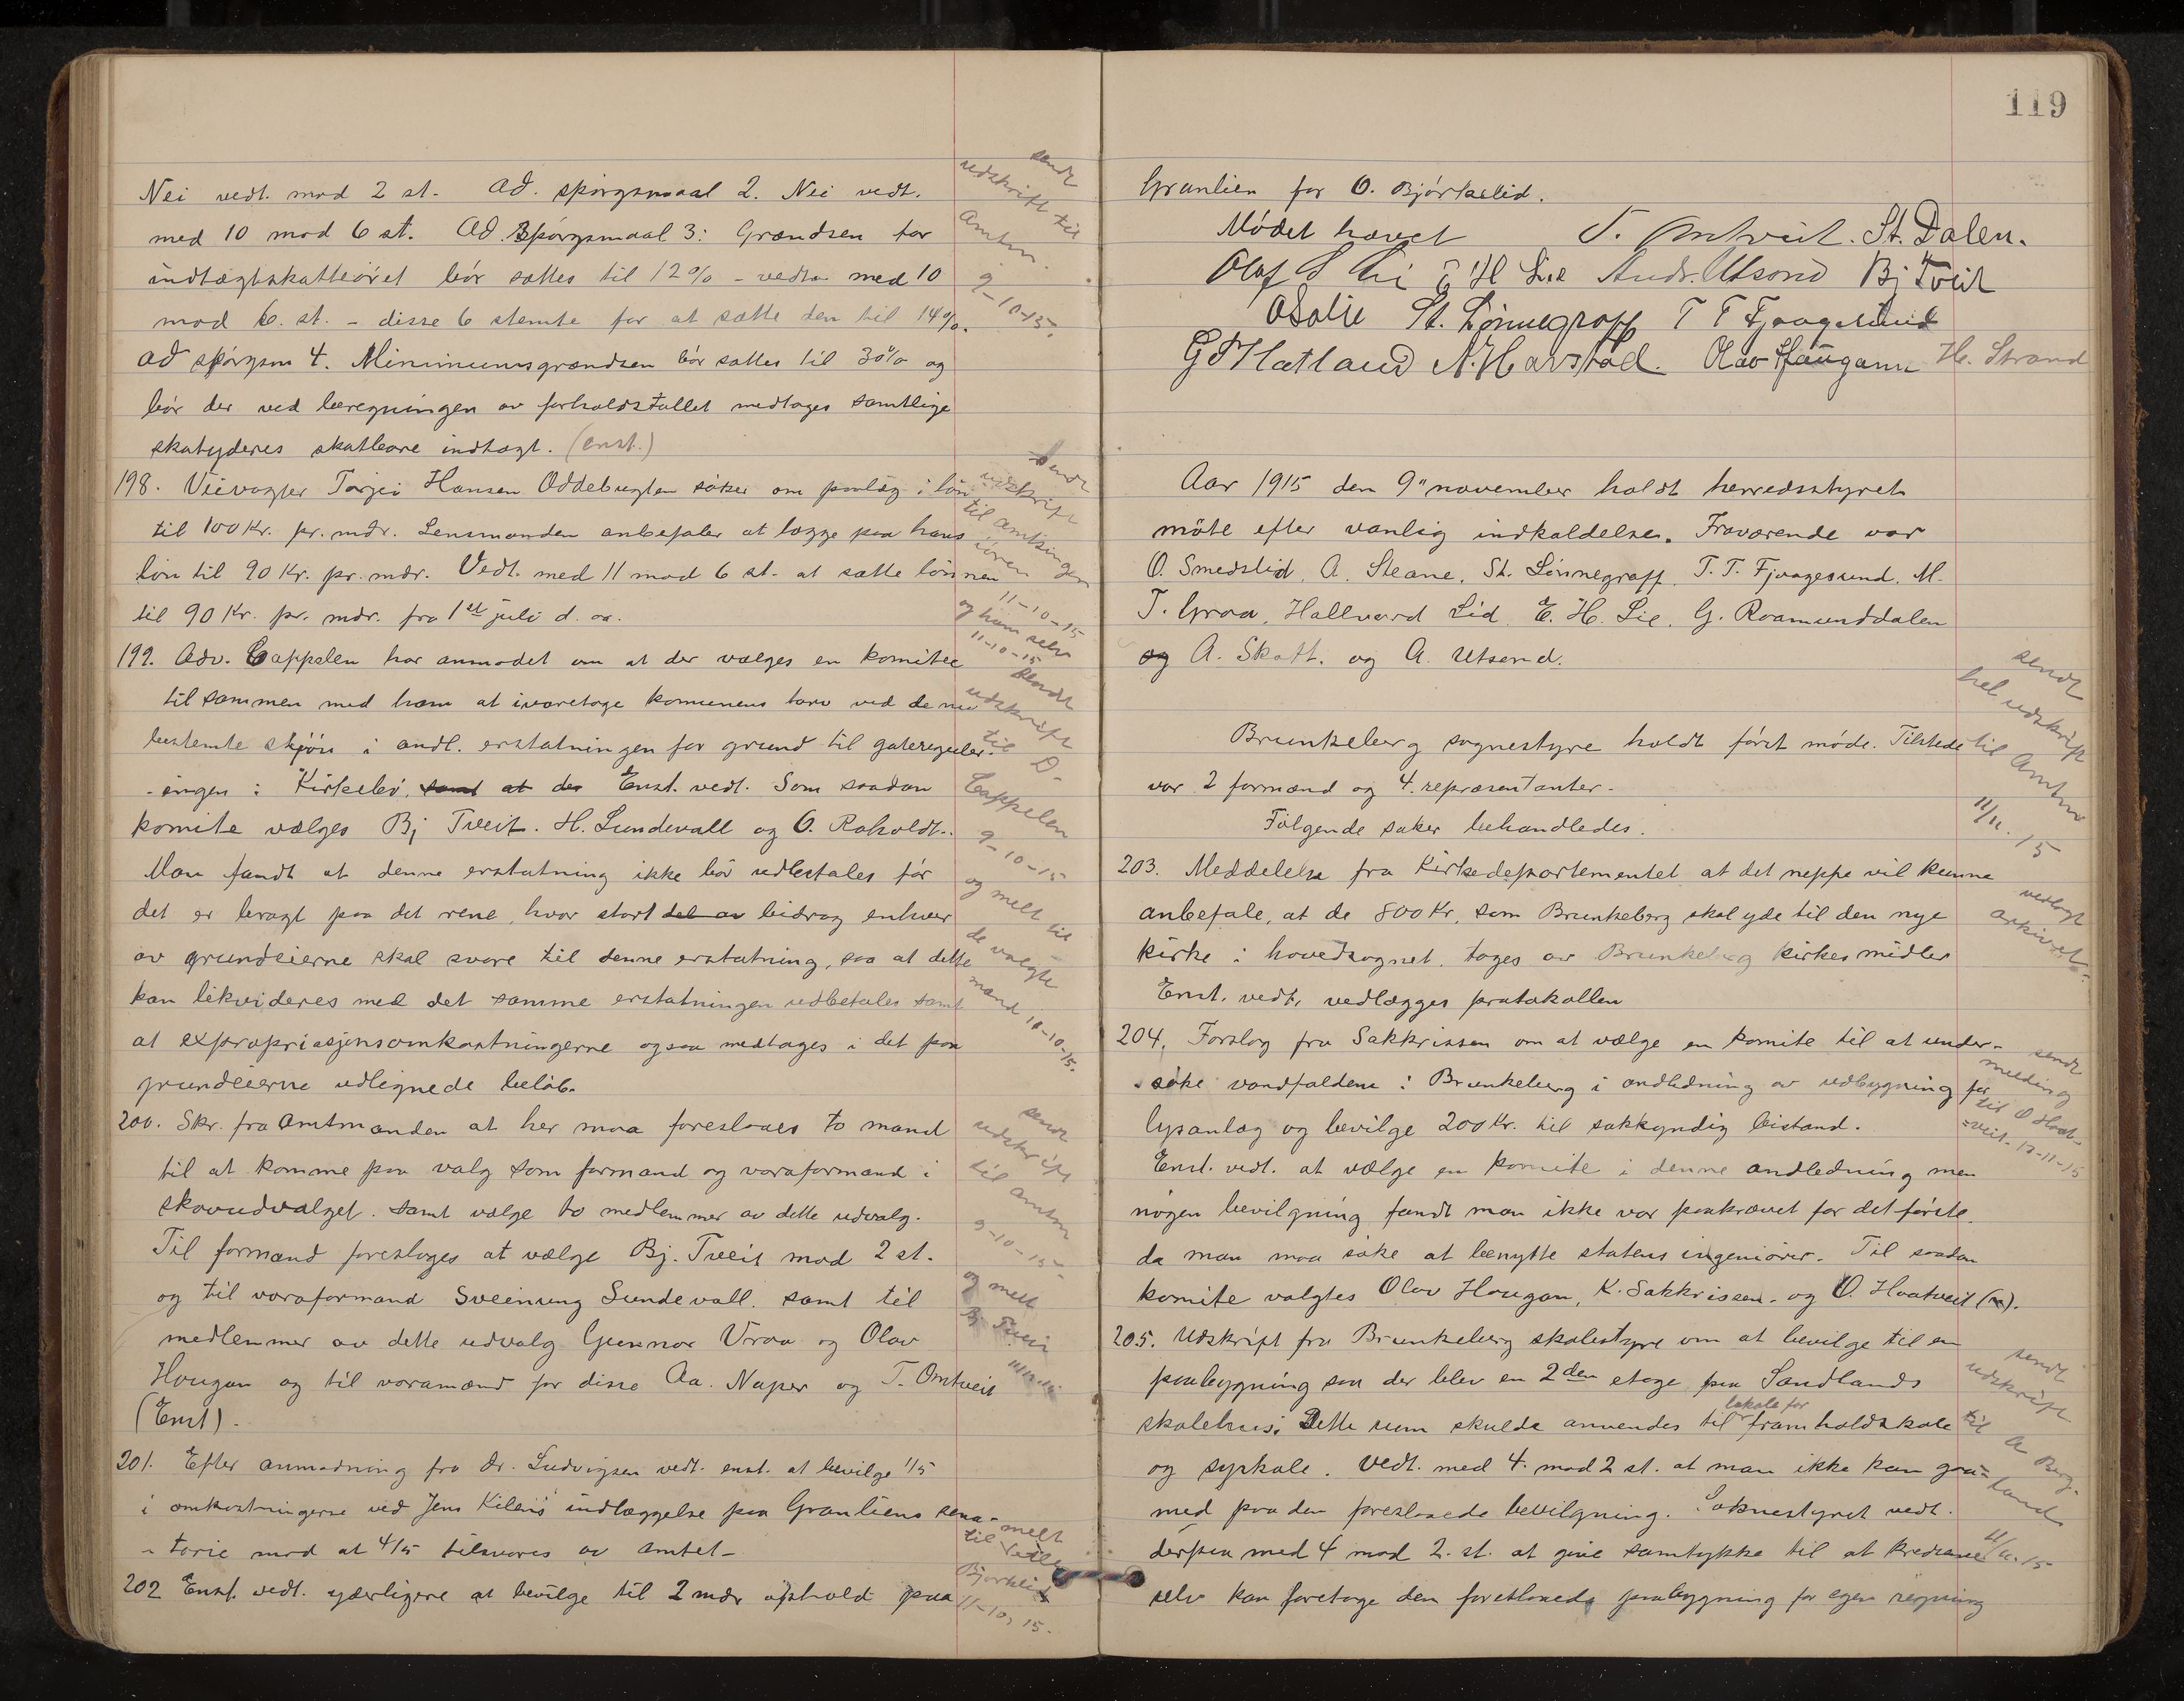 Nei vedt. mod 2 st. Ad. spörgsmaal 2. Nei vedt.
med 10 mod 6 st. Ad. Spörgsmaal 3: Grændsen for
indtægtskatteöret bör sættes til 12% – vedta med 10
mod 6. st. – disse 6 stemte for at sætte den til 14%.
Ad spörgsm 4. Minimumsgrændsen bör sættes til 30% og
bör der ved beregningen av forholdstallet medtages samtlige
skatyderes skatbare indtægt. (Enst.)
sendt
udskrift til
Amtm.
9-10-15.
198. Veivogter Torjei Hansen Oddebugten söker om paalæg i lön
til 100 Kr. pr. mdr. Lensmanden anbefaler at lægge paa hans
lön til 90 Kr. pr. mdr. Vedt. med 11 mod 6 st. at sætte lönnen
til 90 Kr. pr. mdr. fra 1st juli d. aa.
sendt
udskrift
til amtsingen
iören
11-10-15
og ham selv
11-10-15
199. Adv. Cappelen har anmodet om at der vælges en komitee
til sammen med ham at ivaretage komunens tarv ved de nu
bestemte skjön i andl. erstatningen for grund til gatereguler-
-ingen i Kirkebö, samt at der Enst. vedt. Som saadan
komite vælges Bj Tveit. H. Lundevall og O. Roholdt.
Man fandt at denne erstatning ikke bör udbetales för
det er bragt paa det rene, hvor stort del av bidrag enhver
av grundeierne skal svare til denne erstatning, saa at dette
kan likvideres med det samme erstatningen udbetales samt
at expropriasjonsomkostningerne ogsaa medtages i det paa
grundeierne udlignede belöb.
sendt
udskrift
til D.
Cappelen
9-10-15
og melt til
de valgte
mænd 10-10-15.
200. Skr. fra Amtmanden at her maa foreslaaes to mænd
til at komme paa valg som formand og varaformand i
skovudvalget. samt vælge to medlemmer av dette udvalg.
Til formand foreslages at vælge Bj. Tveit mod 2 st.
og til varaformand Sveinung Lundevall. samt til
medlemmer av dette udvalg Gunnar Vraa og Olav
Hougan og til varamænd for disse Aa. Naper og T. Omtveit
(Enst).
sendt
udskrift
til amtm
9-10-15
og melt
Bj Tveit
201. Efter anmodning fra dr. Ludvigsen vedt. enst. at bevilge 1/5
i omkostningerne ved Jens Kilens indlæggelse paa Granliens sana-
-torie mod at 4/5 tilsvares av amtet –
202 Enst. vedt. yderligere at bevilge til 2 mdr ophold paa
melt
til
Bjørkelid
11-10-15.
119
Granlien for O. Björkelid.
Mödet hævet T. Omtveit. St. Dalen.
Olaf S Li E H Lie Andr. Utsond Bj Tveit
O Solie St. Lönnegraff T T Fjaagesund
G Hatland N. Harstad. Olav Haugann H. Strand
Aar 1915 den 9" november holdt herredsstyret
möte efter vanlig indkaldelse. Fraværende var
O. Smedslid, A. Steane, St. Lönnegraff, T. T. Fjaagesund. M.
T. Groa, Hallvard Lid, E. H. Lie, G. Raamunddalen
og A. Skott. og A. Utsond.
Brunkeberg sognestyre holdt först möde. Tilstede
var 2 formænd og 4. representanter.
Fölgende saker behandledes.
sendt
hel udskrift
til Amtm
11/11. 15
203. Meddelelse fra Kirkedepartementet at det neppe vil kunne
anbefale, at de 800 Kr, som Brunkeberg skal yde til den nye
kirke i hovedsognet, tages av Brunkeberg kirkes midler
Enst. vedt. vedlægges protokollen
vedlagt
arkivet.
204. Forslag fra Sakkrissen om at vælge en komite til at under-
-söke vandfaldene i Brunkeberg i andledning av udbygning for
lysanlæg og bevilge 200 Kr. til sakkyndig bistand.
Enst. vedt. at vælge en komite i denne andledning men
nogen bevilgning fandt man ikke var paakrævet for det förste.
da man maa söke at benytte statens ingeniörer. Til saadan
komite valgtes Olav Hougan, K. Sakkrissen. og O. Hoatveit (n).
sendt
melding
til O Hoat-
-veit. 12-11-15
205. Udskrift fra Brunkeberg skolestyre om at bevilge til en
paabygning saa der blev en 2den etage paa Sandlands
skolehus; Dette rum skulde anvendes til lokale for framholdskole
og syskole. Vedt. med 4. mod 2 st. at man ikke kan gaa
med paa den foreslaaede bevilgning. Soknestyret vedt.
derpaa med 4 mod 2. st. at give samtykke til at kredsene
selv kan foretage den foreslaaede paabygning for egen regning
sendt
udskrift
til
A Berg-
land
11/11.15